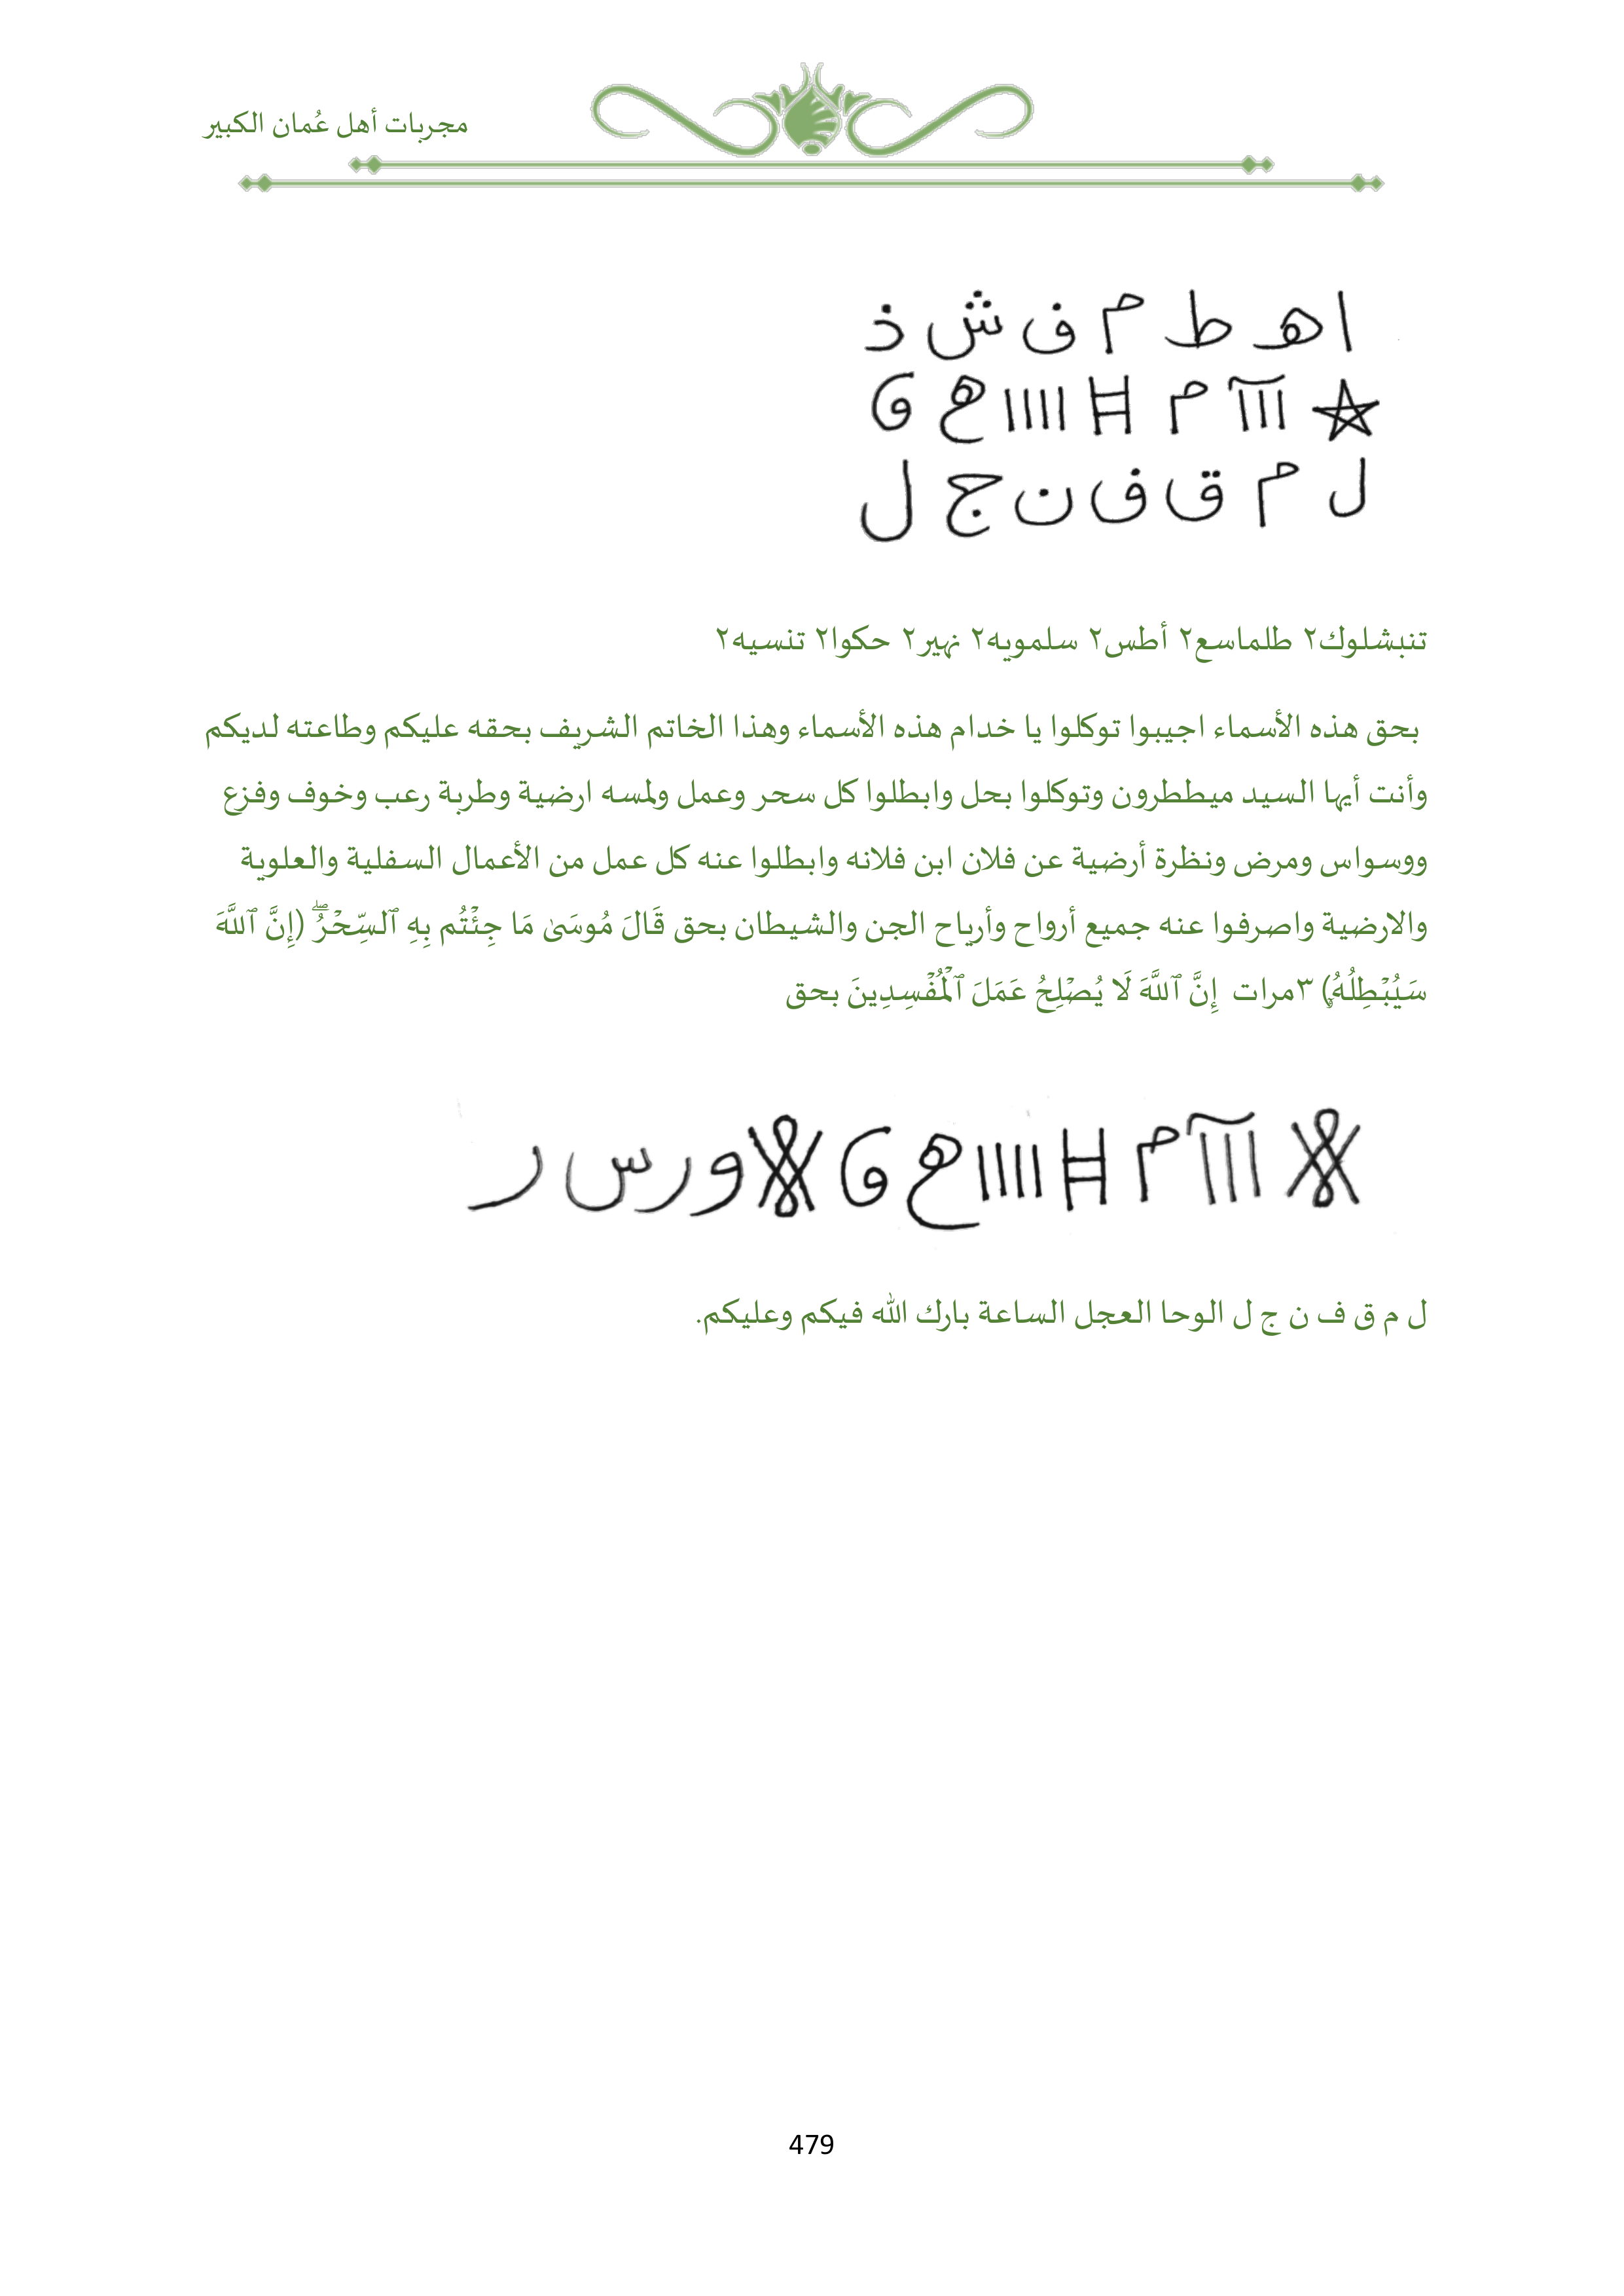 مجربات أهل عُمان الكبير
ا هـ ط م ف ش ذ
م ااااا هـ و
ل م ق ف ن ج ل
تنبشلوك٢ طلماسع٢ أطس٢ سلمويه٢ نهير٢ حكوا٢ تنسيه٢
بحق هذه الأسماء اجيبوا توكلوا يا خدام هذه الأسماء وهذا الخاتم الشريف بحقه عليكم وطاعته لديكم
وأنت أيها السيد ميططرون وتوكلوا بحل وابطلوا كل سحر وعمل ولمسه ارضية وطربة رعب وخوف وفزع
ووسواس ومرض ونظرة أرضية عن فلان ابن فلانه وابطلوا عنه كل عمل من الأعمال السفلية والعلوية
والارضية واصرفوا عنه جميع أرواح وأرياح الجن والشيطان بحق قَالَ مُوسَىٰ مَا جِئْتُم بِهِ ٱلسِّحْرُۖ (إِنَّ ٱللَّهَ
سَيُبْطِلُهُۥٓ) ٣مرات إِنَّ ٱللَّهَ لَا يُصْلِحُ عَمَلَ ٱلْمُفْسِدِينَ بحق
م اااا هـ و و ر س ر
ل م ق ف ن ج ل الوحا العجل الساعة بارك الله فيكم وعليكم.
479